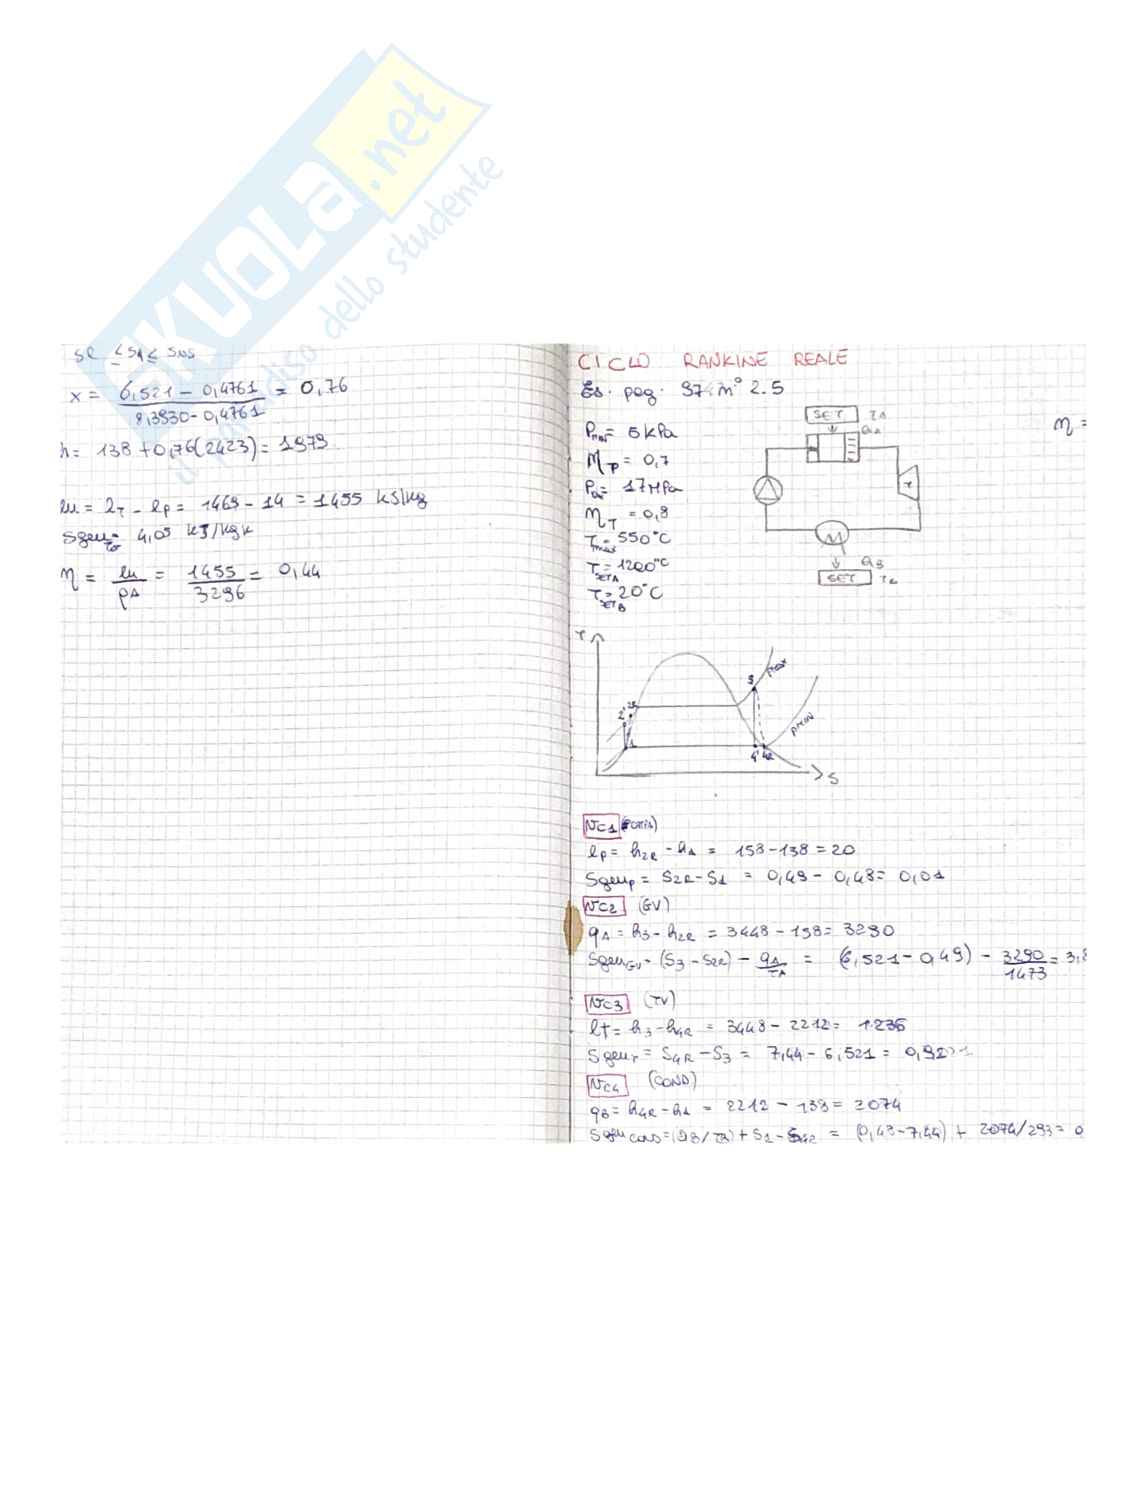 SKUOLA.net
il paradiso dello studente
se ≤ s4 ≤ svs
x = 6,521 - 0,4761 / 8,3930 - 0,4761 = 0,76
h = 138 + 0,76(2423) = 1979
lu = lT - lp = 1469 - 14 = 1455 kJ/kg
Sgen = 4,05 kJ/kgK
η = lu / qA = 1455 / 3296 = 0,44
CICLO RANKINE REALE
Es. pag. 97 n° 2.5
Pmin = 5 kPa
ηP = 0,7
17 MPa
ηT = 0,8
Tmax = 550°C
TSETA = 1200°C
TSETB = 20°C
SET TA
QA
T
M
QB
SET
η =
T
3
pmax
2'
2R
1
pmin
4'
4R
S
VC1
lp = h2R - h1 = 158 - 138 = 20
Sgenp = S2R - S1 = 0,49 - 0,48 = 0,01
VC2 (GV)
qA = h3 - h2R = 3448 - 158 = 3290
SgenGV = (S3 - S2R) - qA / TA = (6,521 - 0,49) - 3290 / 1473 = 3,8
VC3 (TV)
lT = h3 - h4R = 3448 - 2212 = 1236
SgenT = S4R - S3 = 7,44 - 6,521 =
VC4 (COND)
qB = h4R - h1 = 2212 - 138 = 2074
Sgen COND = (QB/TB) + S1 - S4R = (0,48 - 7,44) + 2074/293 = 0